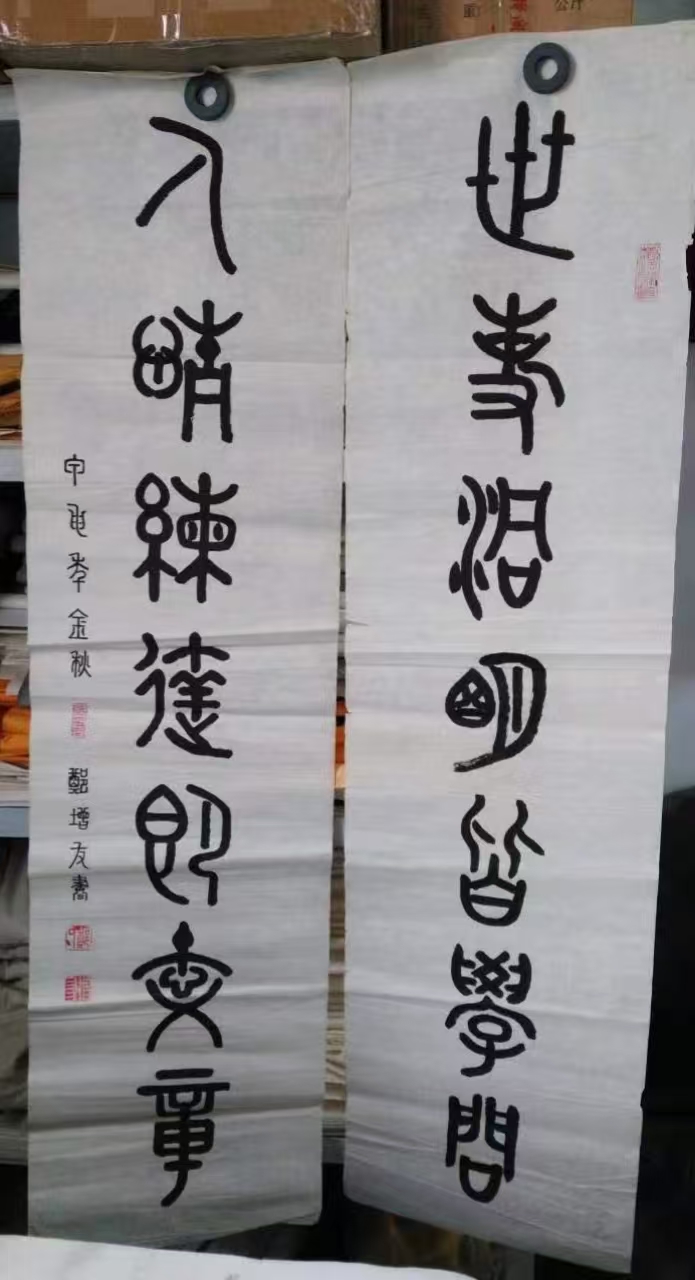 重 公斤
世事洞明皆學問
人情練達即文章
甲年金秋 鄭增友書